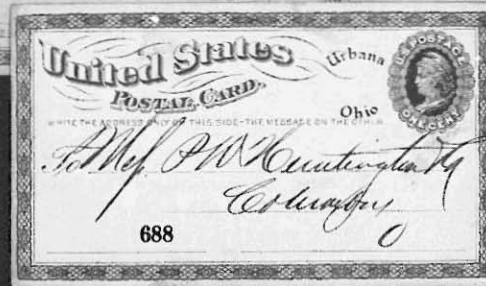 United States
POSTAL CARD.
Urbana
Ohio
U.S. POSTAGE
ONE CENT
WRITE THE ADDRESS ONLY ON THIS SIDE - THE MESSAGE ON THE OTHER
To Mess P W Huntington
Columbus
O
688